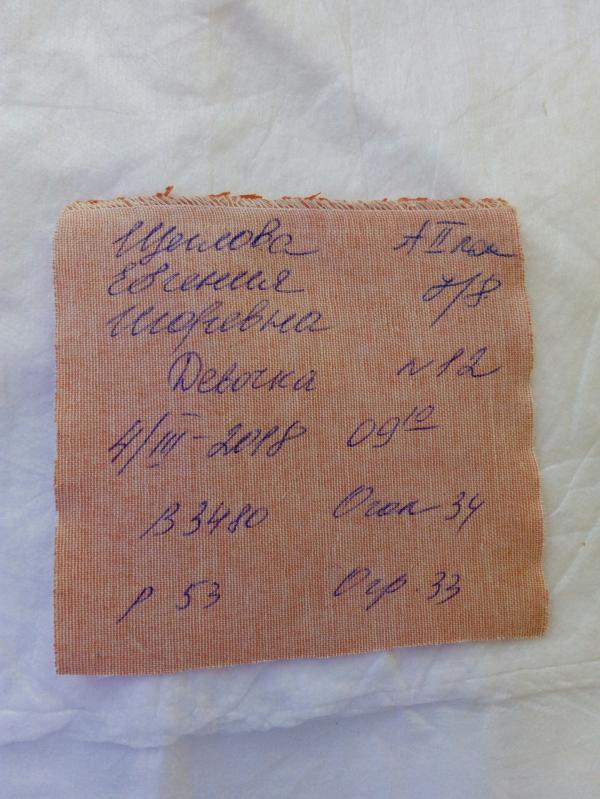 Щеглова А II пол
Евгения т/8
Игоревна
Девочка №12
4/III-2018 09 10
В 3480 Огол 34
р 53 Огр. 33